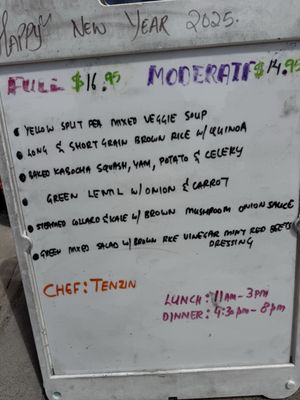 HAPPY NEW YEAR 2025.
FULL $16.95 MODERATE $14.95
• YELLOW SPLIT PEA MIXED VEGGIE SOUP
• LONG & SHORT GRAIN BROWN RICE W/ QUINOA
• BAKED KABOCHA SQUASH, YAM, POTATO & CELERY
• GREEN LENTIL W/ ONION & CARROT
• STEAMED COLLARD & KALE W/ BROWN MUSHROOM ONION SAUCE
• GREEN MIXED SALAD W/ BROWN RICE VINEGAR MINT RED BEETS
DRESSING
CHEF: TENZIN
LUNCH: 11AM - 3PM
DINNER: 4:30PM - 8PM